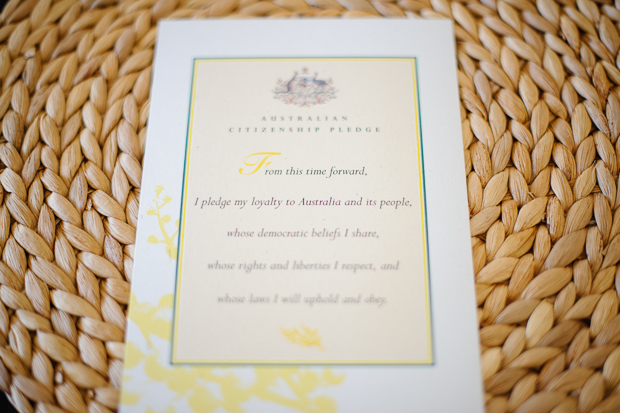 AUSTRALIAN
CITIZENSHIP PLEDGE
From this time forward,
I pledge my loyalty to Australia and its people,
whose democratic beliefs I share,
whose rights and liberties I respect, and
whose laws I will uphold and obey.